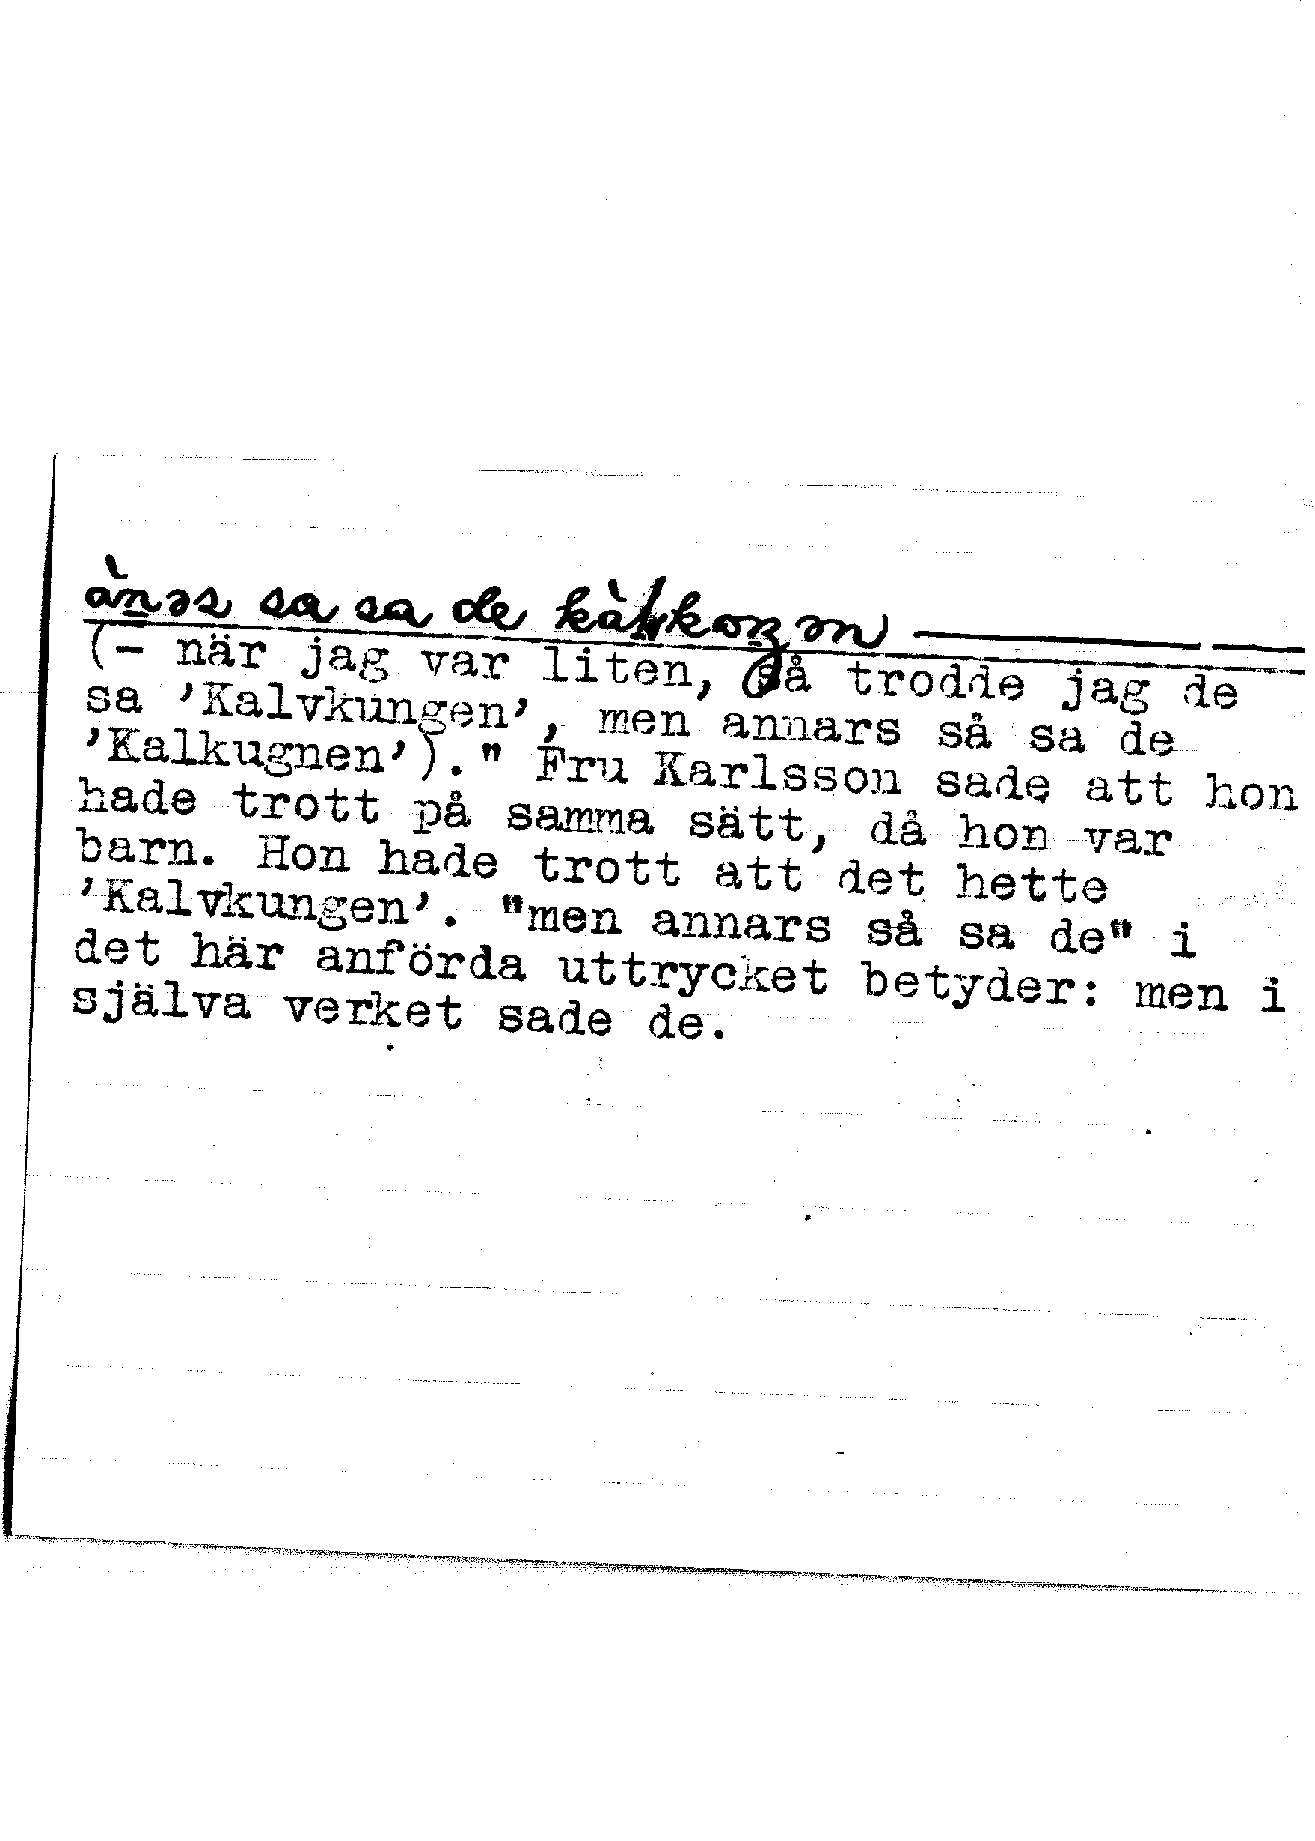 ànəs sa sa de kàlkoŋən
(- när jag var liten, så trodde jag de
sa 'Kalvkungen', men annars så sa de
'Kalkugnen')." Fru Karlsson sade att hon
hade trott på samma sätt, då hon var
barn. Hon hade trott att det hette
'Kalvkungen'. "men annars så sa de" i
det här anförda uttrycket betyder: men i
själva verket sade de.